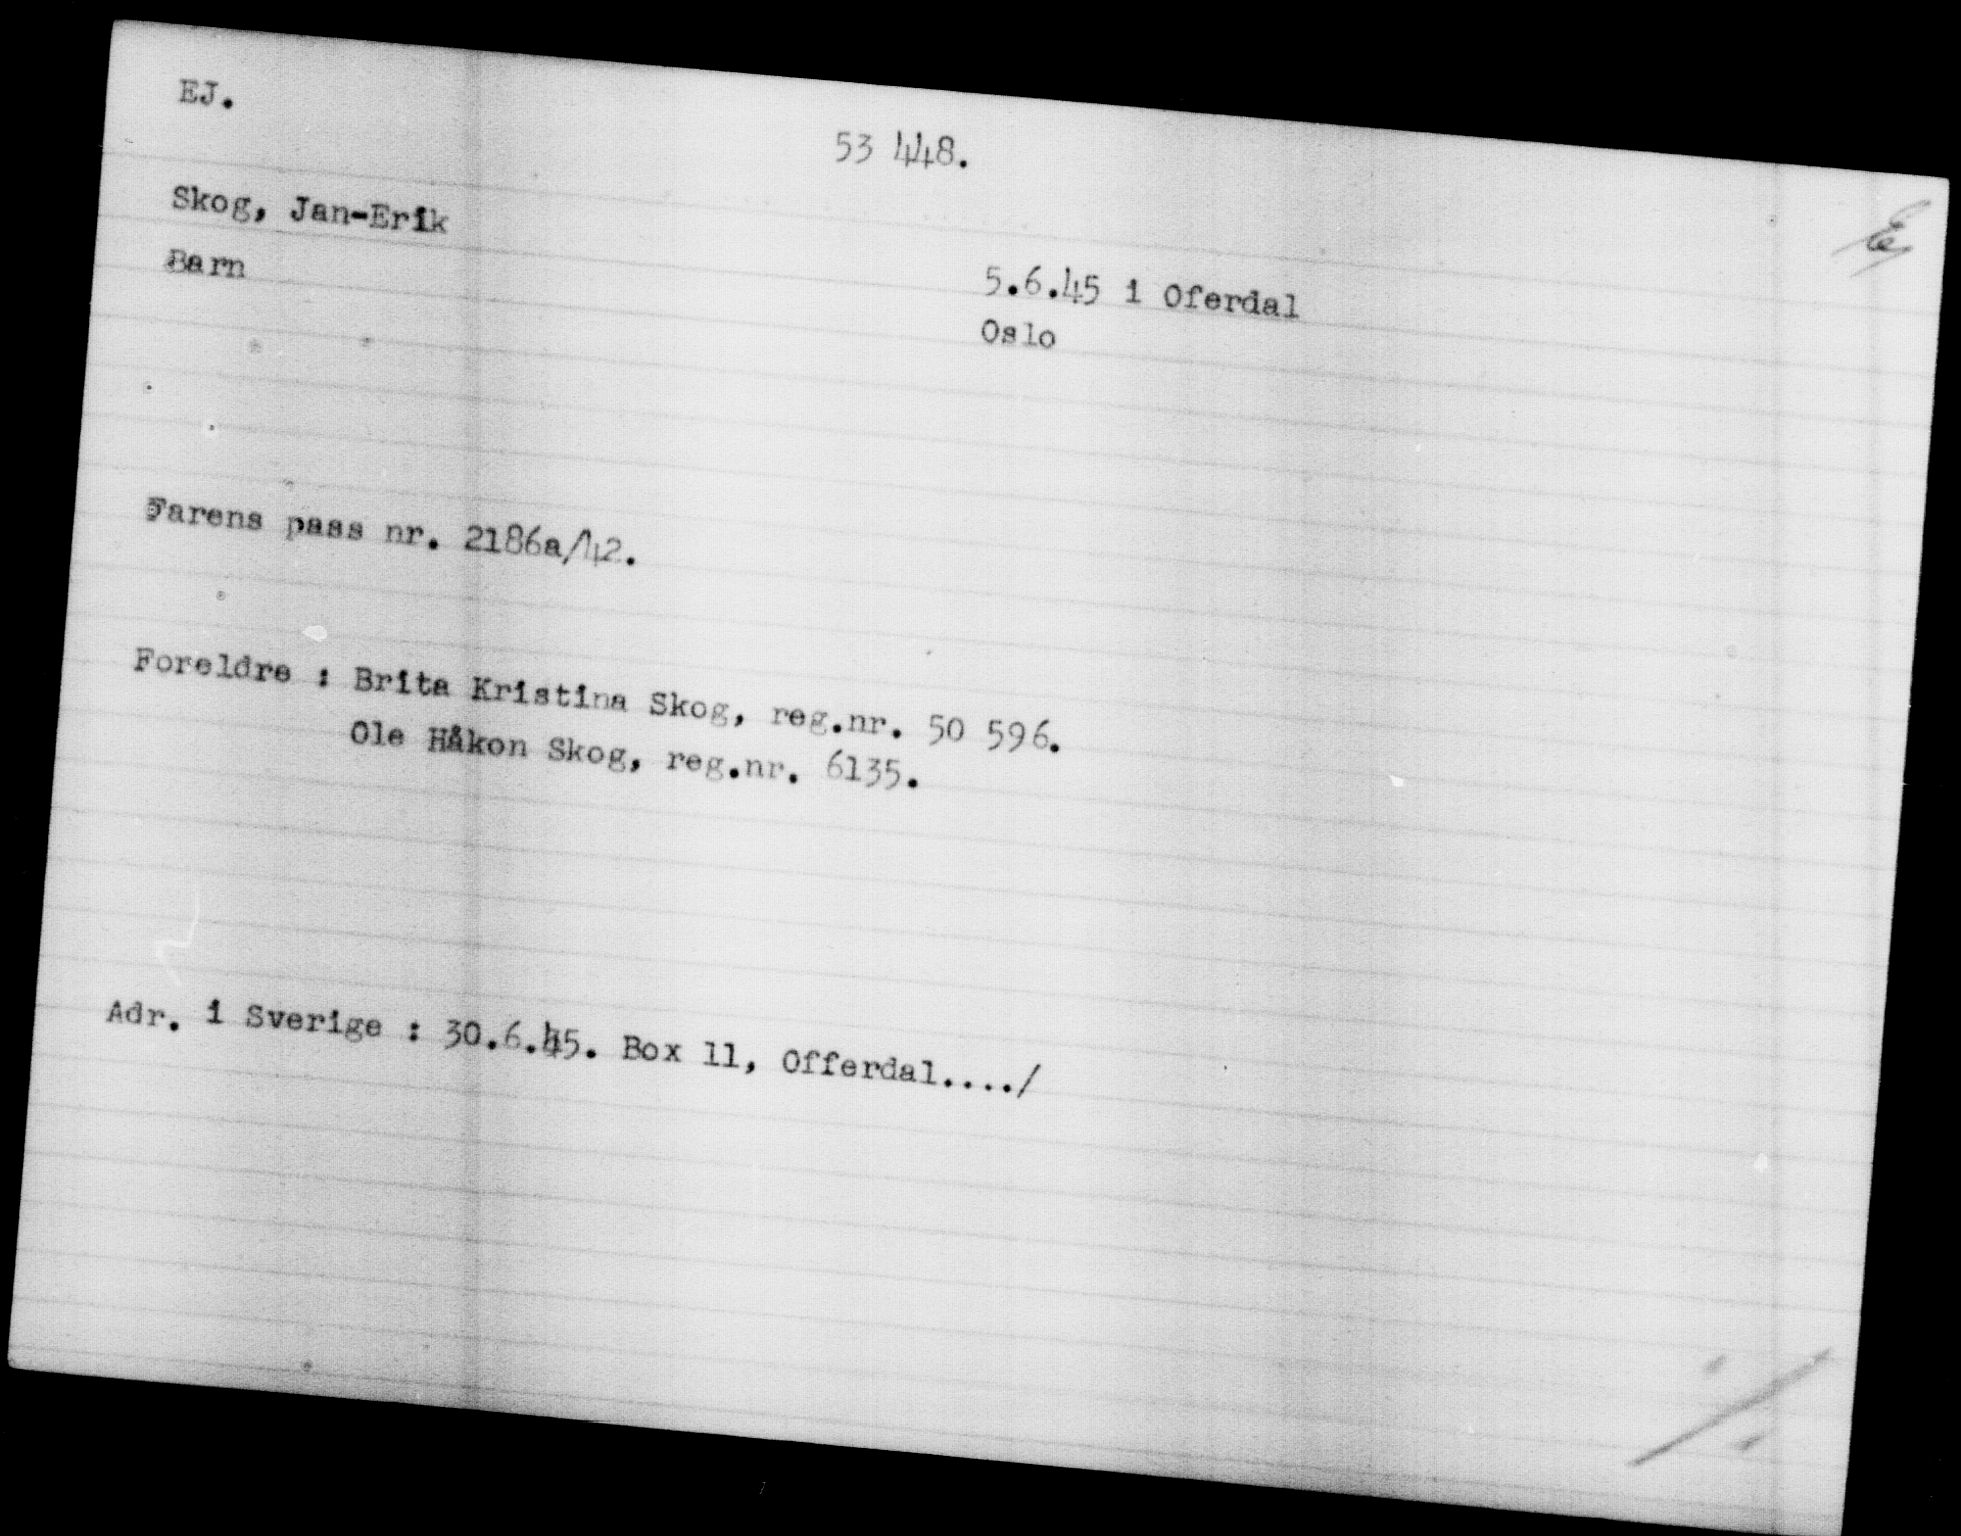 EJ.
53 448.
Skog, Jan-Erik
Barn
5.6.45 i Oferdal
Oslo
Farens pass nr. 2186a/42.
Foreldre : Brita Kristina Skog, reg.nr. 50 596.
Ole Håkon Skog, reg.nr. 6135.
Adr. i Sverige : 30.6.45. Box 11, Offerdal..../